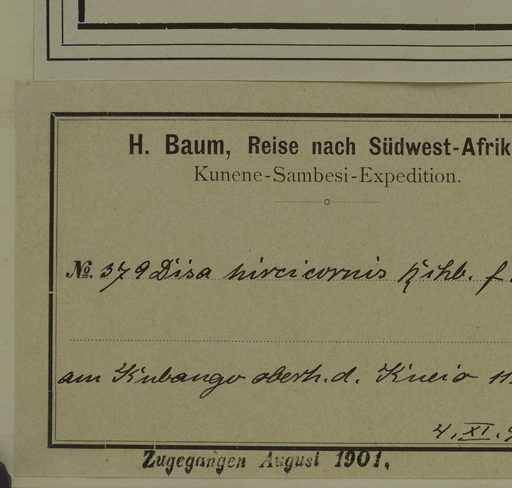 H. Baum, Reise nach Südwest-Afrik
Kunene-Sambesi-Expedition.
№. 379 Disa hircicornis Rchb. f.
am Kubango oberh. d. Kueio 11
4. XI. 9
Zugegangen August 1901.